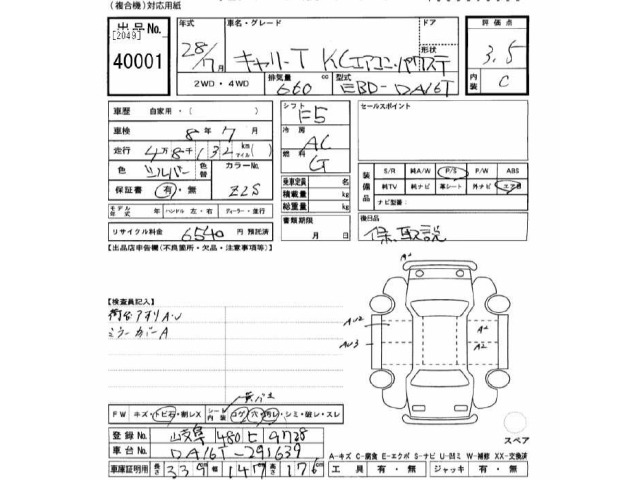 (複合機)対応用紙
出品No. 年式 車名・グレード ドア 評価点
[2049] 形状
40001 28/7月 キャリーT KCエアコン・パワステ 3.5
2WD・4WD 排気量 660 cc 型式 EBD-DA16T 内装 C
車歴 自家用・( ) シフト F5 セールスポイント
車検 8年7月 冷房 AC
走行 4万8千132 km マイル( ) 燃料 G
色 シルバー 色替 カラーNo. Z2S
保証書 有・無
乗車定員 名
積載量 kg
総重量 kg
装備品 S/R 純A/W P/S P/W ABS
純TV 純ナビ 革シート 外ナビ エアB
ナビ型番:
モデル年式 年 ハンドル 左・右 ディーラー・並行
書類期限 月 日
後日品 保、取説
リサイクル料金 6540 円 預託済
【出品店申告欄(不良箇所・欠品・注意事項等)】
【検査員記入】
荷台アオリAU
ミラーカバーA
AU2
AU3
A2
A2
FW キズ・トビ石・割レX シート内装 コゲ・穴・汚レ・シミ・破レ・スレ
登録No. 岐阜 480 む 9728
車台No. DA16T-291639
スペア
A-キズ C-腐食 E-エクボ S-サビ U-凹ミ W-補修 XX-交換済
車庫証明用 長さ 339 cm 幅 147 cm 高さ 176 cm 工具 有・無 ジャッキ 有・無